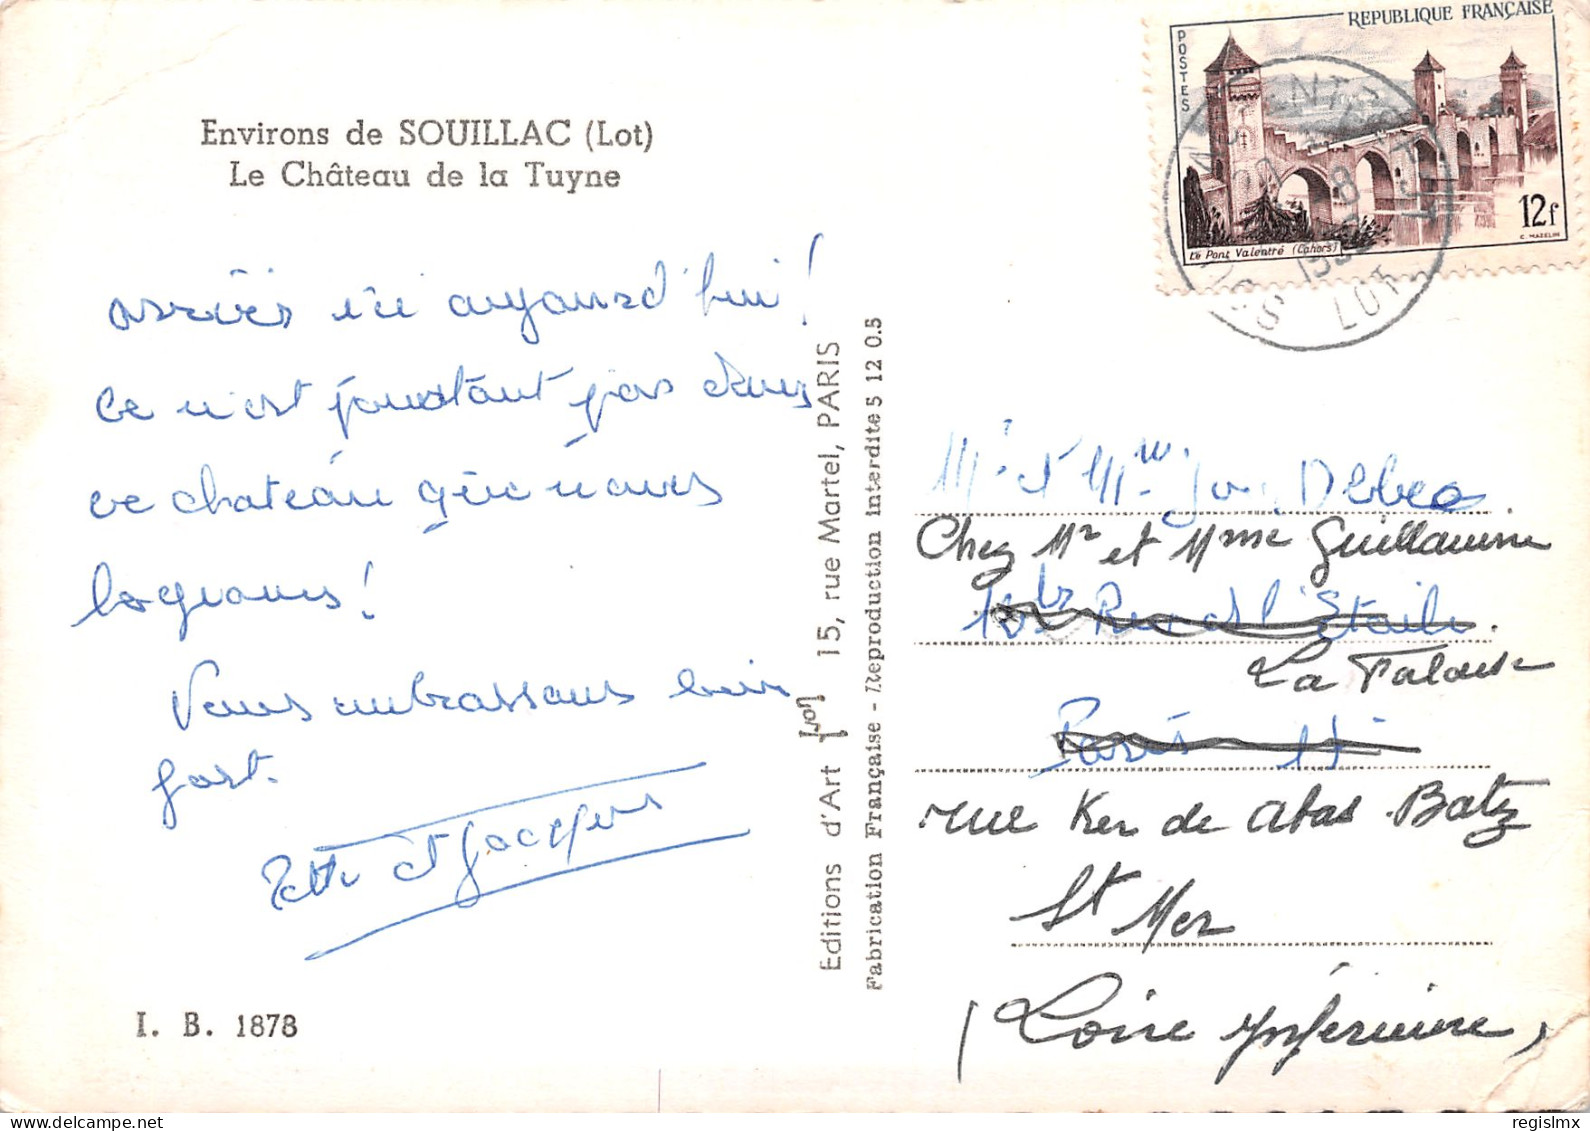 Environs de SOUILLAC (Lot)
Le Château de la Tuyne
arrivés ici aujourd'hui !
Ce n'est pourtant pas dans
ce château que nous
logeons !
Vous embrassons bien
fort.
et Jacques
I. B. 1878
Editions d'Art Yvon 15, rue Martel, PARIS
Fabrication Française - Reproduction interdite 5 12 0.5
REPUBLIQUE FRANÇAISE
POSTES
12f
Le Pont Valentré (Cahors)
C. MAZELIN
LOT
Mr et Mme
Chez Mr et Mme Guillaume
Rue de l'Etoile.
La Falaise
Paris
rue Ker de abas Batz
St Mer
(Loire Inférieure)
regislmx